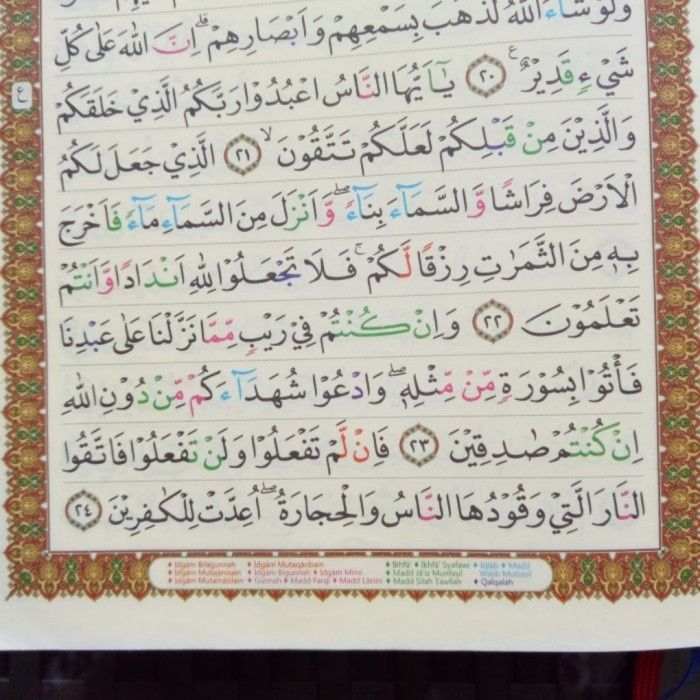 وَلَوْ شَاۤءَ اللّٰهُ لَذَهَبَ بِسَمْعِهِمْ وَاَبْصَارِهِمْ ۗ اِنَّ اللّٰهَ عَلٰى كُلِّ
شَيْءٍ قَدِيْرٌ ࣖ ٢٠ يٰٓاَيُّهَا النَّاسُ اعْبُدُوْا رَبَّكُمُ الَّذِيْ خَلَقَكُمْ
وَالَّذِيْنَ مِنْ قَبْلِكُمْ لَعَلَّكُمْ تَتَّقُوْنَ ۙ ٢١ الَّذِيْ جَعَلَ لَكُمُ
الْاَرْضَ فِرَاشًا وَّالسَّمَاۤءَ بِنَاۤءً ۖ وَّاَنْزَلَ مِنَ السَّمَاۤءِ مَاۤءً فَاَخْرَجَ
بِهٖ مِنَ الثَّمَرٰتِ رِزْقًا لَّكُمْ ۚ فَلَا تَجْعَلُوْا لِلّٰهِ اَنْدَادًا وَّاَنْتُمْ
تَعْلَمُوْنَ ٢٢ وَاِنْ كُنْتُمْ فِيْ رَيْبٍ مِّمَّا نَزَّلْنَا عَلٰى عَبْدِنَا
فَأْتُوْا بِسُوْرَةٍ مِّنْ مِّثْلِهٖ ۖ وَادْعُوْا شُهَدَاۤءَكُمْ مِّنْ دُوْنِ اللّٰهِ
اِنْ كُنْتُمْ صٰدِقِيْنَ ٢٣ فَاِنْ لَّمْ تَفْعَلُوْا وَلَنْ تَفْعَلُوْا فَاتَّقُوا
النَّارَ الَّتِيْ وَقُوْدُهَا النَّاسُ وَالْحِجَارَةُ ۖ اُعِدَّتْ لِلْكٰفِرِيْنَ ٢٤
ع
♦ Idgām Bilagunnah ♦ Idgām Mutaqāribain ♦ Ikhfā' ♦ Ikhfā' Syafawi ♦ Iqlab ♦ Madd
♦ Idgām Mutajānisain ♦ Idgām Bigunnah ♦ Idgām Mimi ♦ Madd Jā'iz Munfaṣil Wajib Muttasil
♦ Idgām Mutamāṡilain ♦ Gunnah ♦ Madd Farqi ♦ Madd Lāzim ♦ Madd Silah Tawīlah ♦ Qalqalah